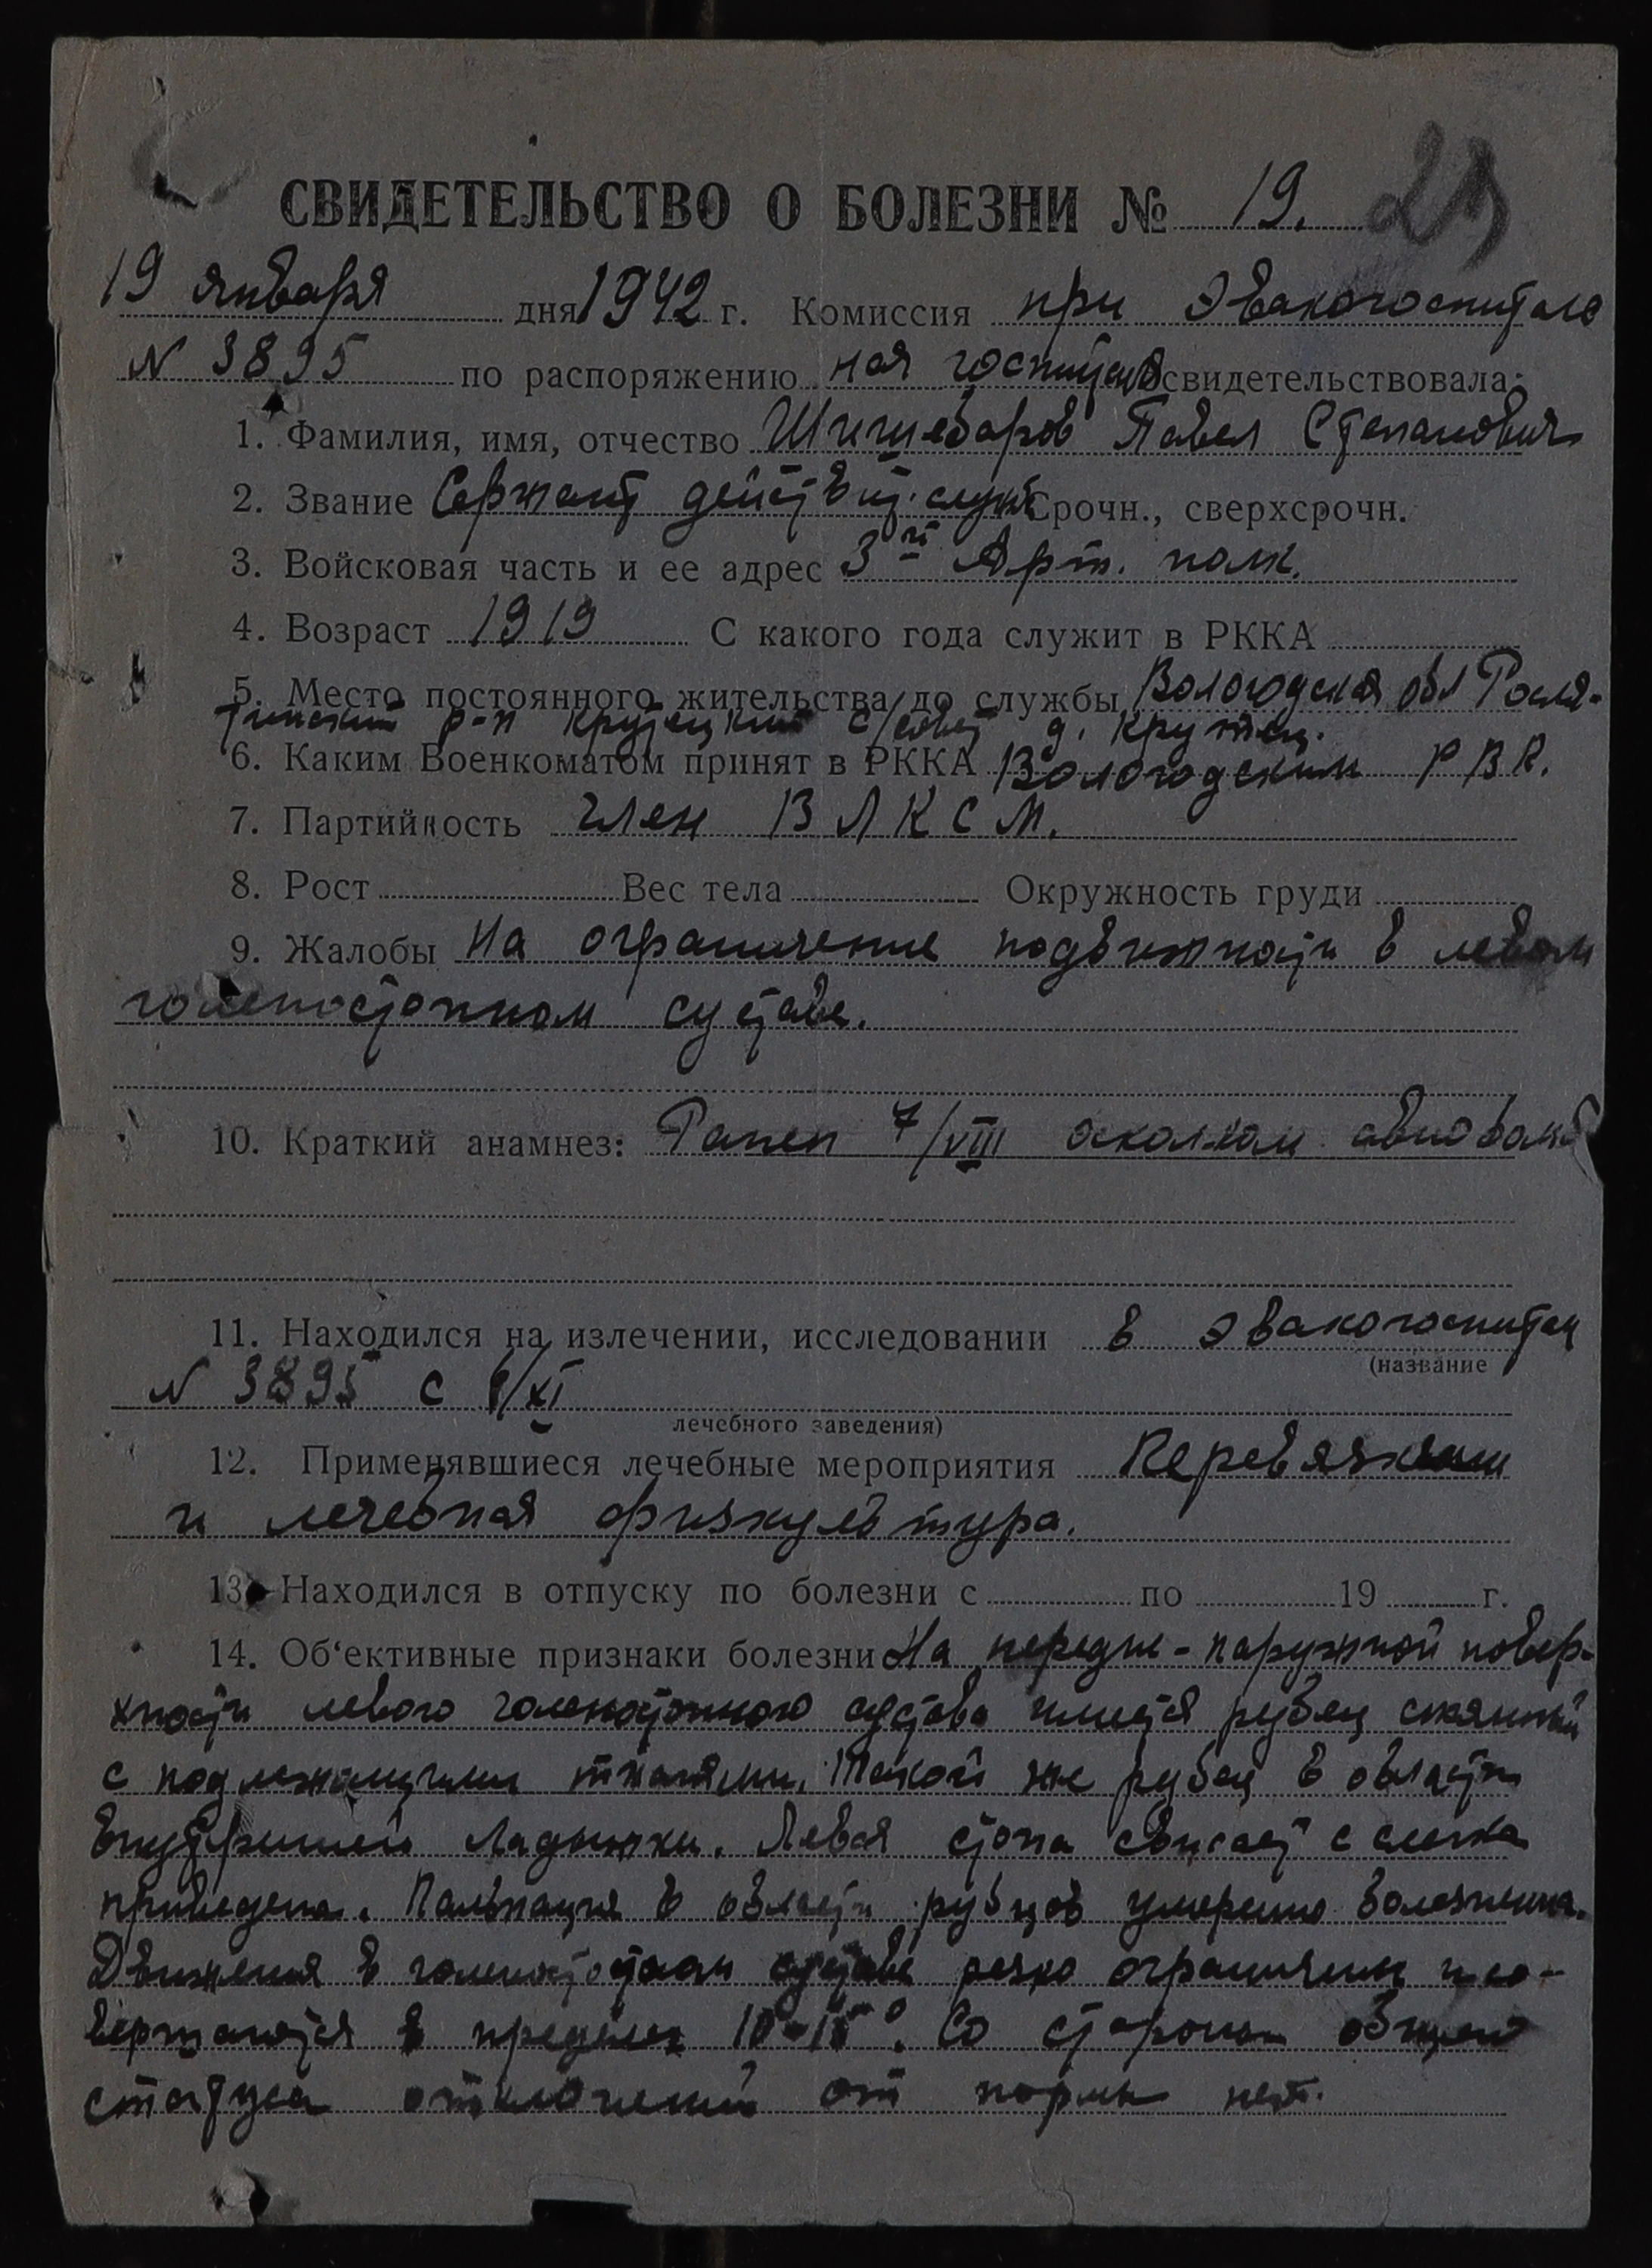 СВИДЕТЕЛЬСТВО О БОЛЕЗНИ № 19.
19 января дня 1942 г. Комиссия при Эвакогоспитале
N 3895 по распоряжению нач госпиталя освидетельствовала:
1. Фамилия, имя, отчество Павел Степанович
2. Звание Сержант действит. служб Срочн., сверхсрочн.
3. Войсковая часть и ее адрес 3й Арт. полк.
4. Возраст 1919 С какого года служит в РККА
5. Место постоянного жительства до службы Вологодская обл Росля-
тинский р-н Крутецкий с/совет д. Крутец.
6. Каким Военкоматом принят в РККА Вологодским РВК.
7. Партийность член ВЛКСМ.
8. Рост Вес тела Окружность груди
9. Жалобы На ограничение подвижности в левом
голеностопном суставе.
10. Краткий анамнез: Ранен 7/VIII осколком авиобомб
11. Находился на излечении, исследовании в эвакогоспитал
(название
N 3895 с /XI
лечебного заведения)
12. Применявшиеся лечебные мероприятия Перевязками
и лечебная физкультура.
13. Находился в отпуску по болезни с по 19 г.
14. Об'ективные признаки болезни На передне-наружной повер-
хности левого голеностопного сустава имеется рубец спаянный
с подлежащими тканями. Такой же рубец в области
внутренней ладыжки. Левая стопа свисает с слегка
приведена. Пальпация в области рубцов умеренно болезненна.
Движения в сустави резко ограничены и со-
вершаются в пределах 10-15°. Со стороны общего
статуса отклонений от нормы нет.